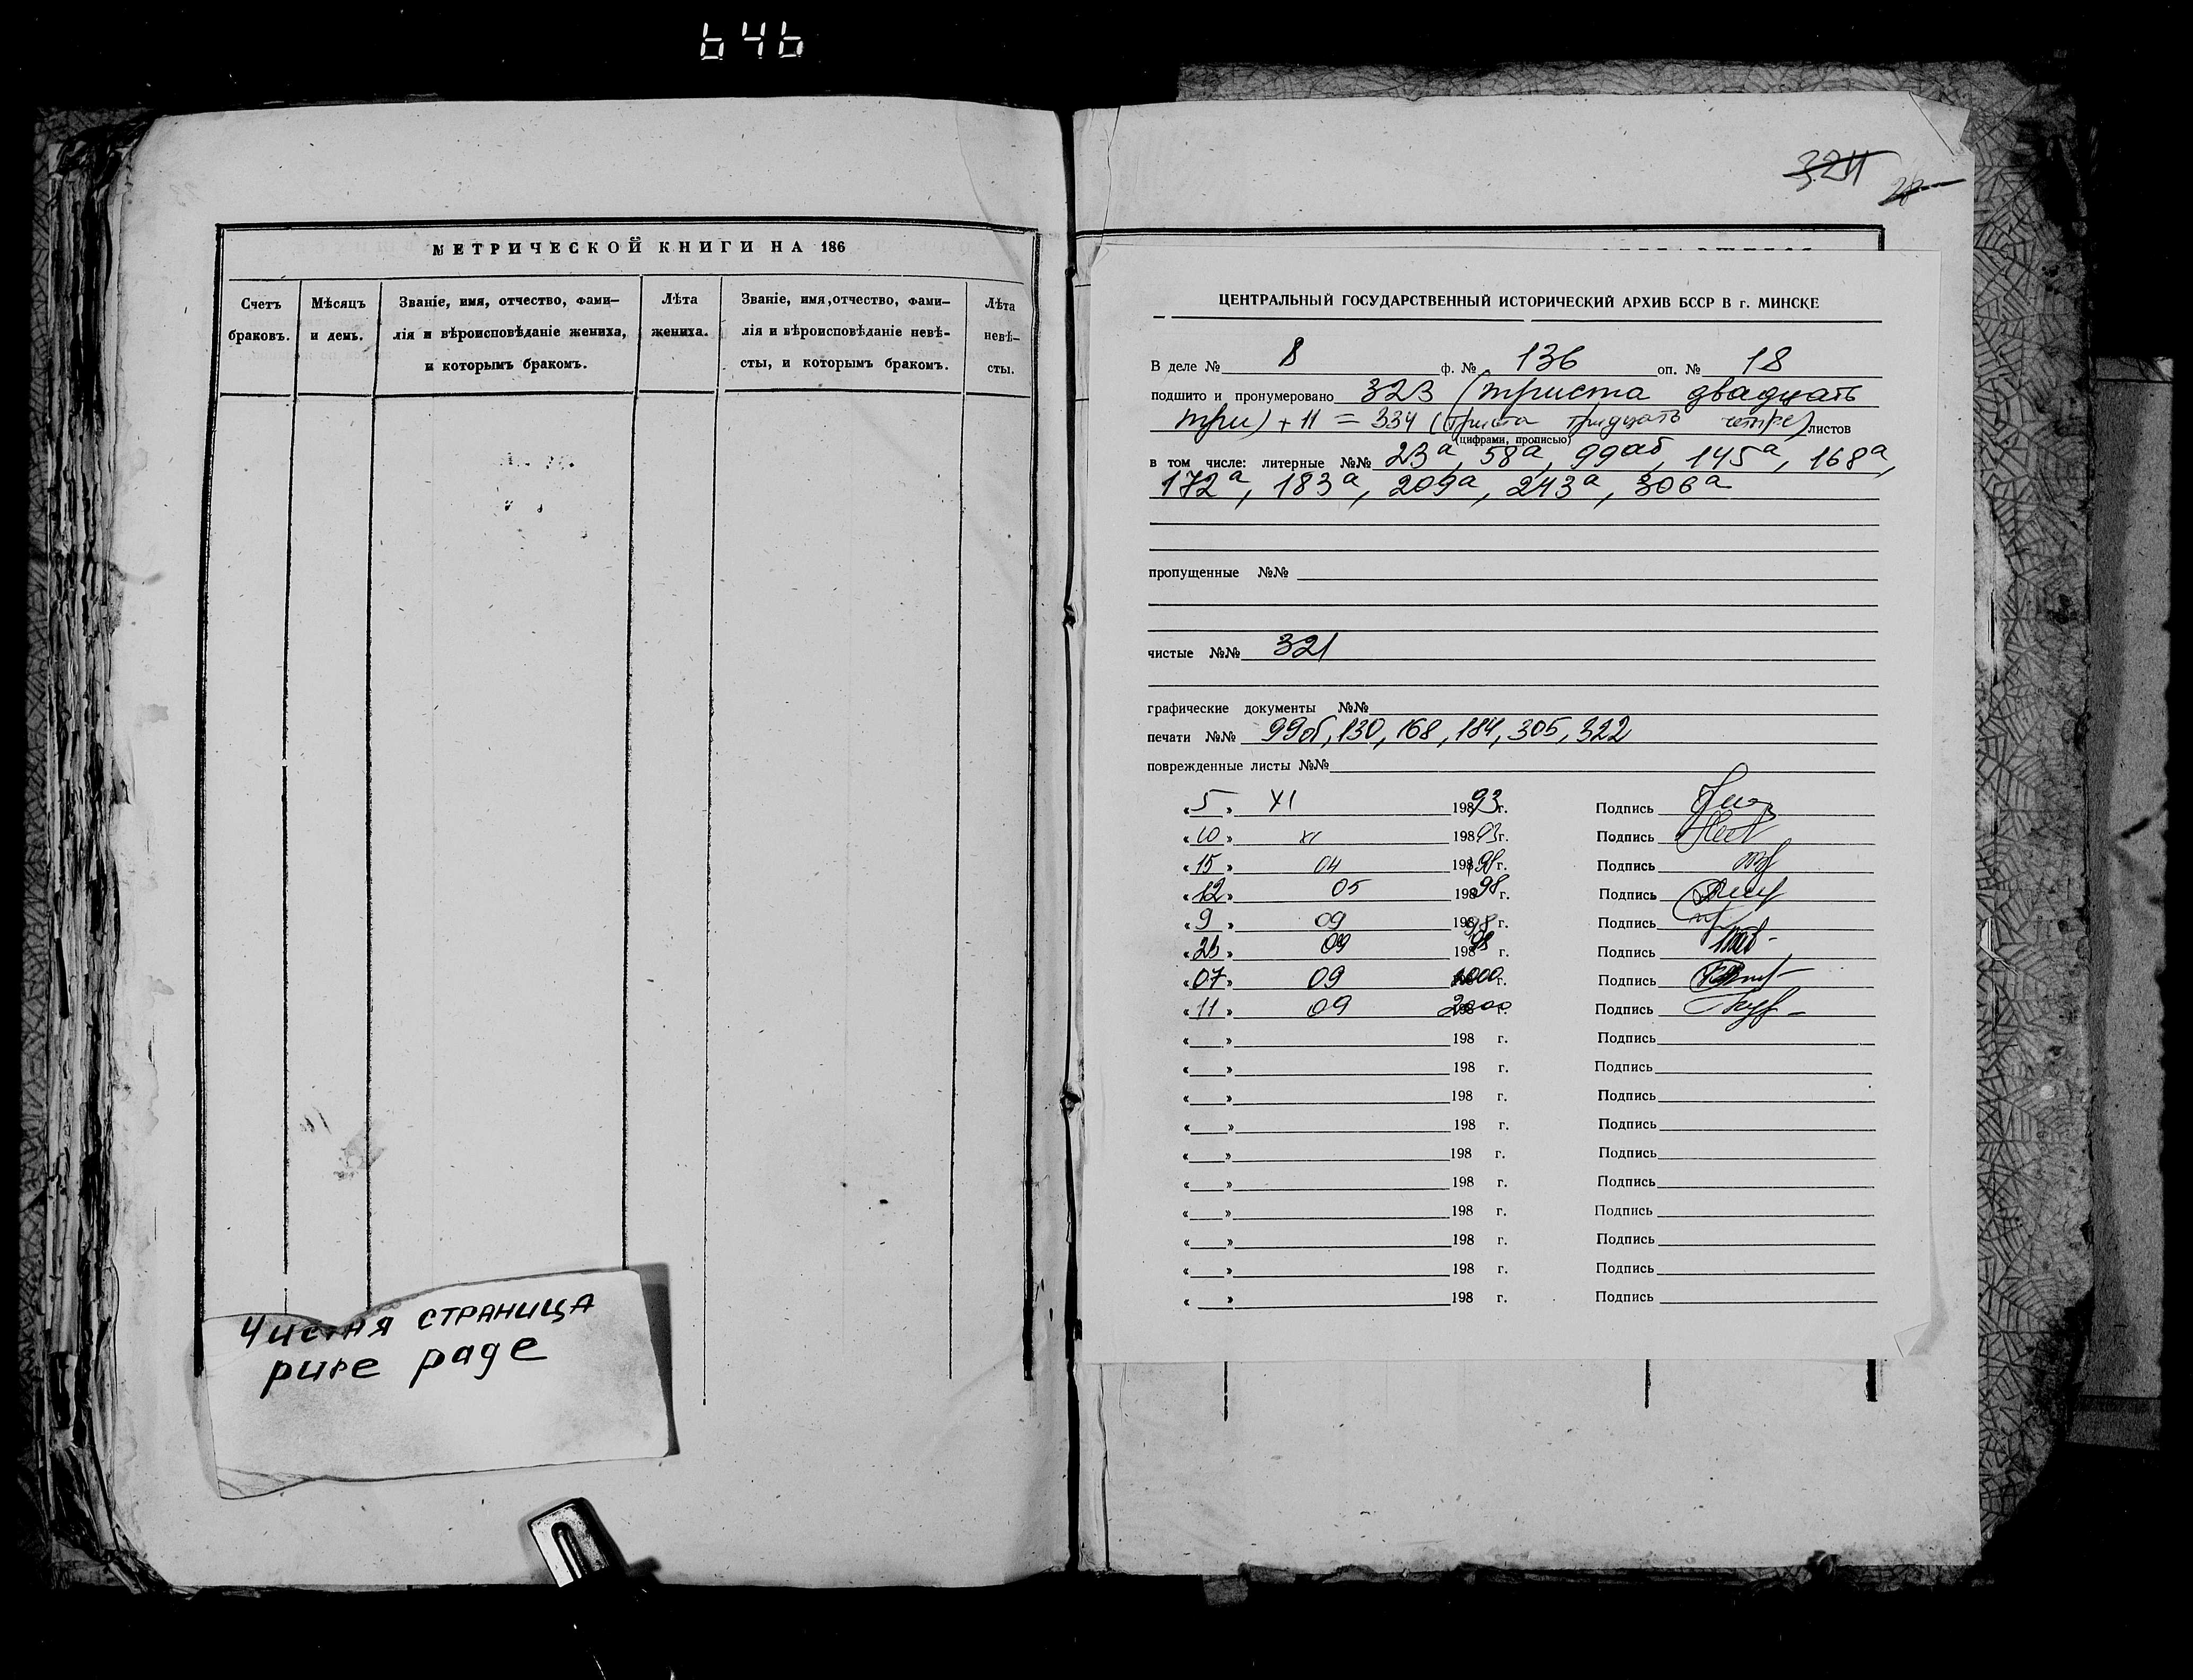 646
МЕТРИЧЕСКОЙ КНИГИ НА 186
Счетъ браковъ.
Мѣсяцъ и день.
Званіе, имя, отчество, фами-
лія и вѣроисповѣданіе жениха,
и которымъ бракомъ.
Лѣта жениха.
Званіе, имя,отчество, фами-
лія и вѣроисповѣданіе невѣ-
сты, и которымъ бракомъ.
Лѣта невѣ-
сты.
Чистая страница
pure page
324
ЦЕНТРАЛЬНЫЙ ГОСУДАРСТВЕННЫЙ ИСТОРИЧЕСКИЙ АРХИВ БССР В г. МИНСКЕ
В деле № 8 ф. № 136 оп. № 18
подшито и пронумеровано 323 (триста двадцать
три) + 11 = 334 (триста тридцать четыре) листов
(цифрами, прописью)
в том числе: литерные №№ 23а, 58а, 99аб, 145а, 168а,
172а, 183а, 209а, 243а, 306а
пропущенные №№
чистые №№ 321
графические документы №№
печати №№ 99об, 130, 168, 184, 305, 322
поврежденные листы №№
«5» XI 19893г. Подпись
«10» XI 19893г. Подпись
«15» 04 19898г. Подпись
«12» 05 19898г. Подпись
«9» 09 19898г. Подпись
«23» 09 19898 г. Подпись
«07» 09 2000г. Подпись
«11» 09 2000 г. Подпись
« » 198 г. Подпись
« » 198 г. Подпись
« » 198 г. Подпись
« » 198 г. Подпись
« » 198 г. Подпись
« » 198 г. Подпись
« » 198 г. Подпись
« » 198 г. Подпись
« » 198 г. Подпись
« » 198 г. Подпись